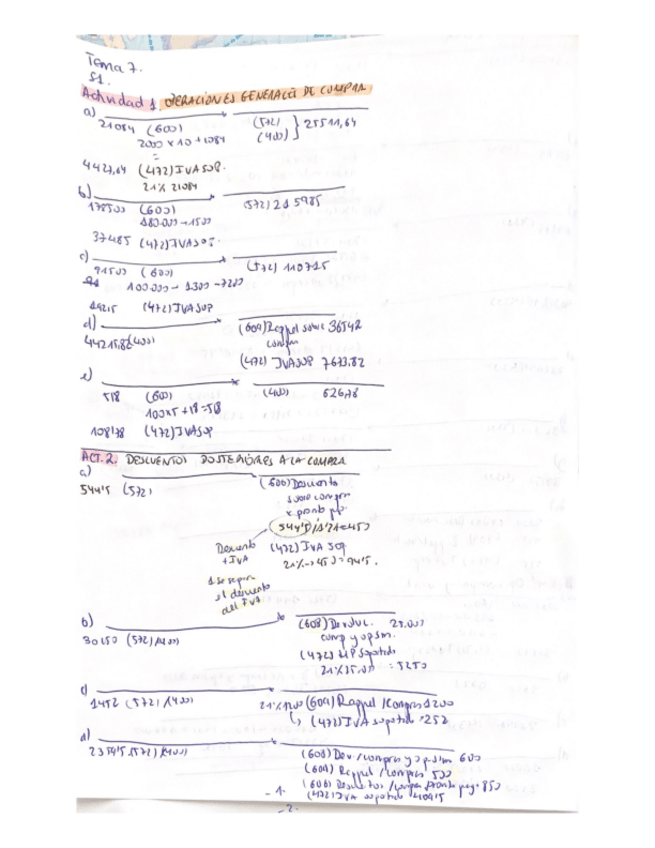 Tema 7.
S1.
Actividad 1. OPERACIONES GENERALES DE COMPRA
a)
21084 (600) (572)
2000 x 10 + 1084 (400) } 25511,64
=
4427,64 (472) IVA SOP.
21% 21084
b)
178500 (600) (572) 215985
180.000 - 1500
37485 (472) IVA SOP.
c)
91500 (600) (572) 110715
100.000 - 1300 - 7200
19215 (472) IVA SOP
d) (609) Rappel sobre 36542
compra
44215,82 (400) (472) IVA SOP 7673.82
e)
518 (600) (400) 626,78
100x5 + 18 = 518
108,78 (472) IVA SOP
ACT. 2. DESCUENTOS POSTERIORES A LA COMPRA
a)
544'5 (572) (606) Descuento
sobre compra
x pronto pp.
544'5/1'21 = 450
Descuento (472) IVA SOP
+ IVA 21% → 450 = 94'5.
el descuento
del IVA
b) (608) Devoluc. 25.000
30250 (572)/(400) comp y op sim.
(472) IVA Soportado
21% 25.000 = 5250
c)
1452 (572)/(400) 21% 1200 (609) Rappel /compras 1200
(472) IVA soportado 252
d)
2359'5 (572)/(400) (608) Dev /compras y op sim 600
(609) Rappel /compras 500
(606) Descuentos /compra pronto pago 850
(472) IVA soportado 409'5
- 1 -
- 2 -